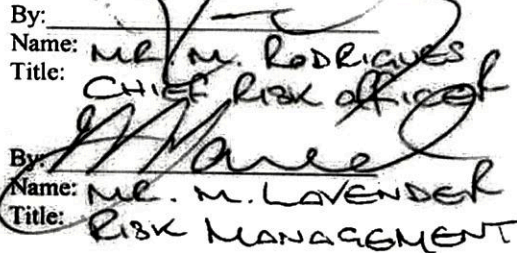 By:
Name: MR. M. RODRIGUES
Title: CHIEF RISK OFFICER
By:
Name: MR. M. LAVENDER
Title: RISK MANAGEMENT